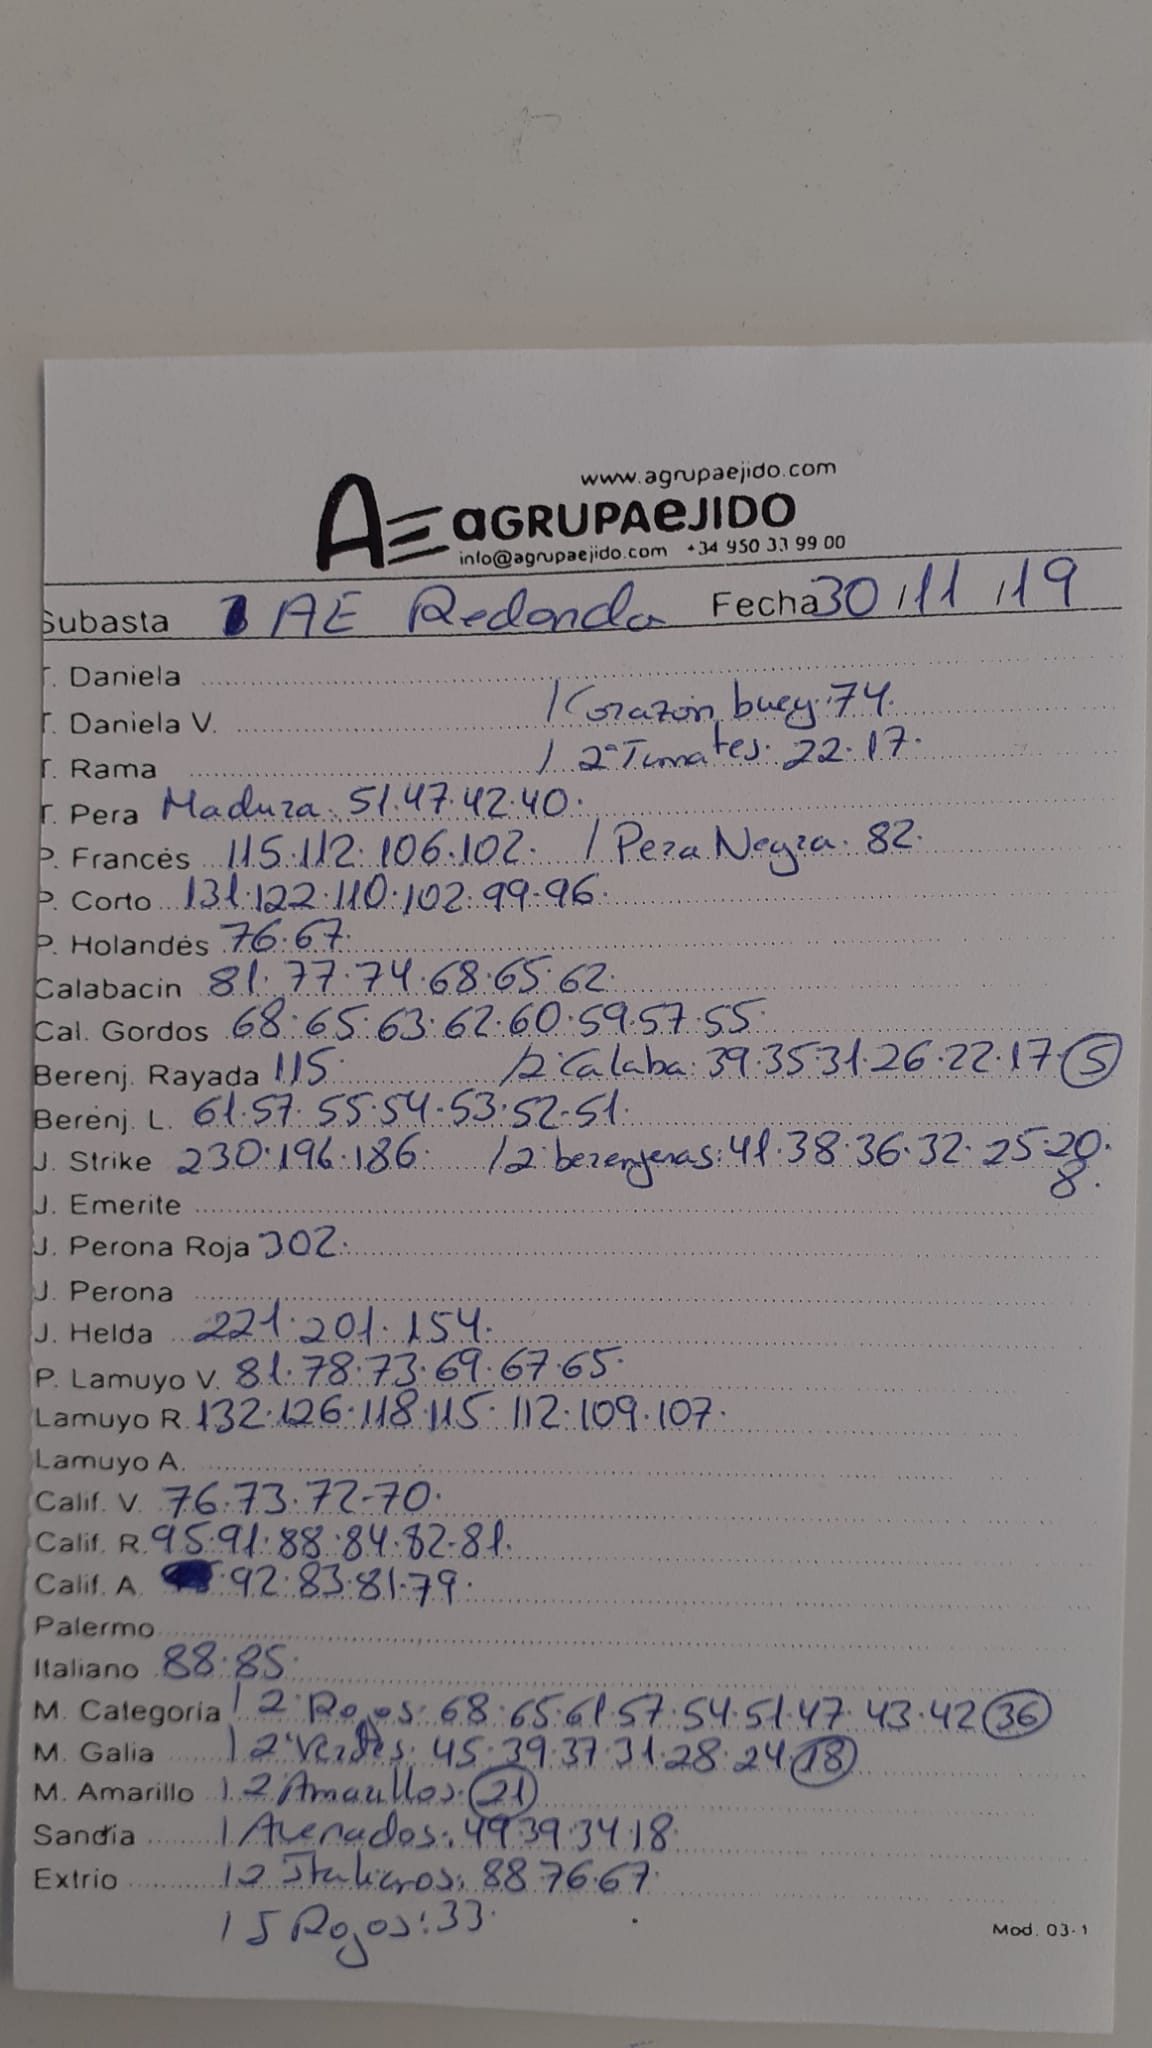 www.agrupaejido.com
AE aGRUPAeJIDO
info@agrupaejido.com +34 950 33 99 00
Subasta AE Redonda Fecha 30/11/19
T. Daniela
T. Daniela V. / Corazón buey. 74.
T. Rama / 2ª Tomates. 22.17.
T. Pera Madura. 51.47.42.40.
P. Francés 115.112.106.102. / Pera Negra. 82.
P. Corto 131.122.110.102.99.96.
P. Holandés 76.67.
Calabacin 81.77.74.68.65.62.
Cal. Gordos 68.65.63.62.60.59.57.55.
Berenj. Rayada 115. /2ª Calaba: 39.35.31.26.22.17.5
Berenj. L. 61.57.55.54.53.52.51.
J. Strike 230.196.186. /2ª berenjenas: 41.38.36.32.25.20.
8.
J. Emerite
J. Perona Roja 302.
J. Perona
J. Helda 221.201.154.
P. Lamuyo V. 81.78.73.69.67.65.
Lamuyo R. 132.126.118.115.112.109.107.
Lamuyo A.
Calif. V. 76.73.72.70.
Calif. R. 95.91.88.84.82.81.
Calif. A. 92.83.81.79.
Palermo
Italiano 88.85.
M. Categoria / 2ª Rojos: 68.65.61.57.54.51.47.43.42 36
M. Galia / 2ª Verdes: 45.39.37.31.28.24 18
M. Amarillo / 2 Amarillos. 21
Sandia / Asurados: 49.39.34.18.
Extrio / 2 Italianos: 88.76.67.
/ 5 Rojos: 33.
Mod. 03-1